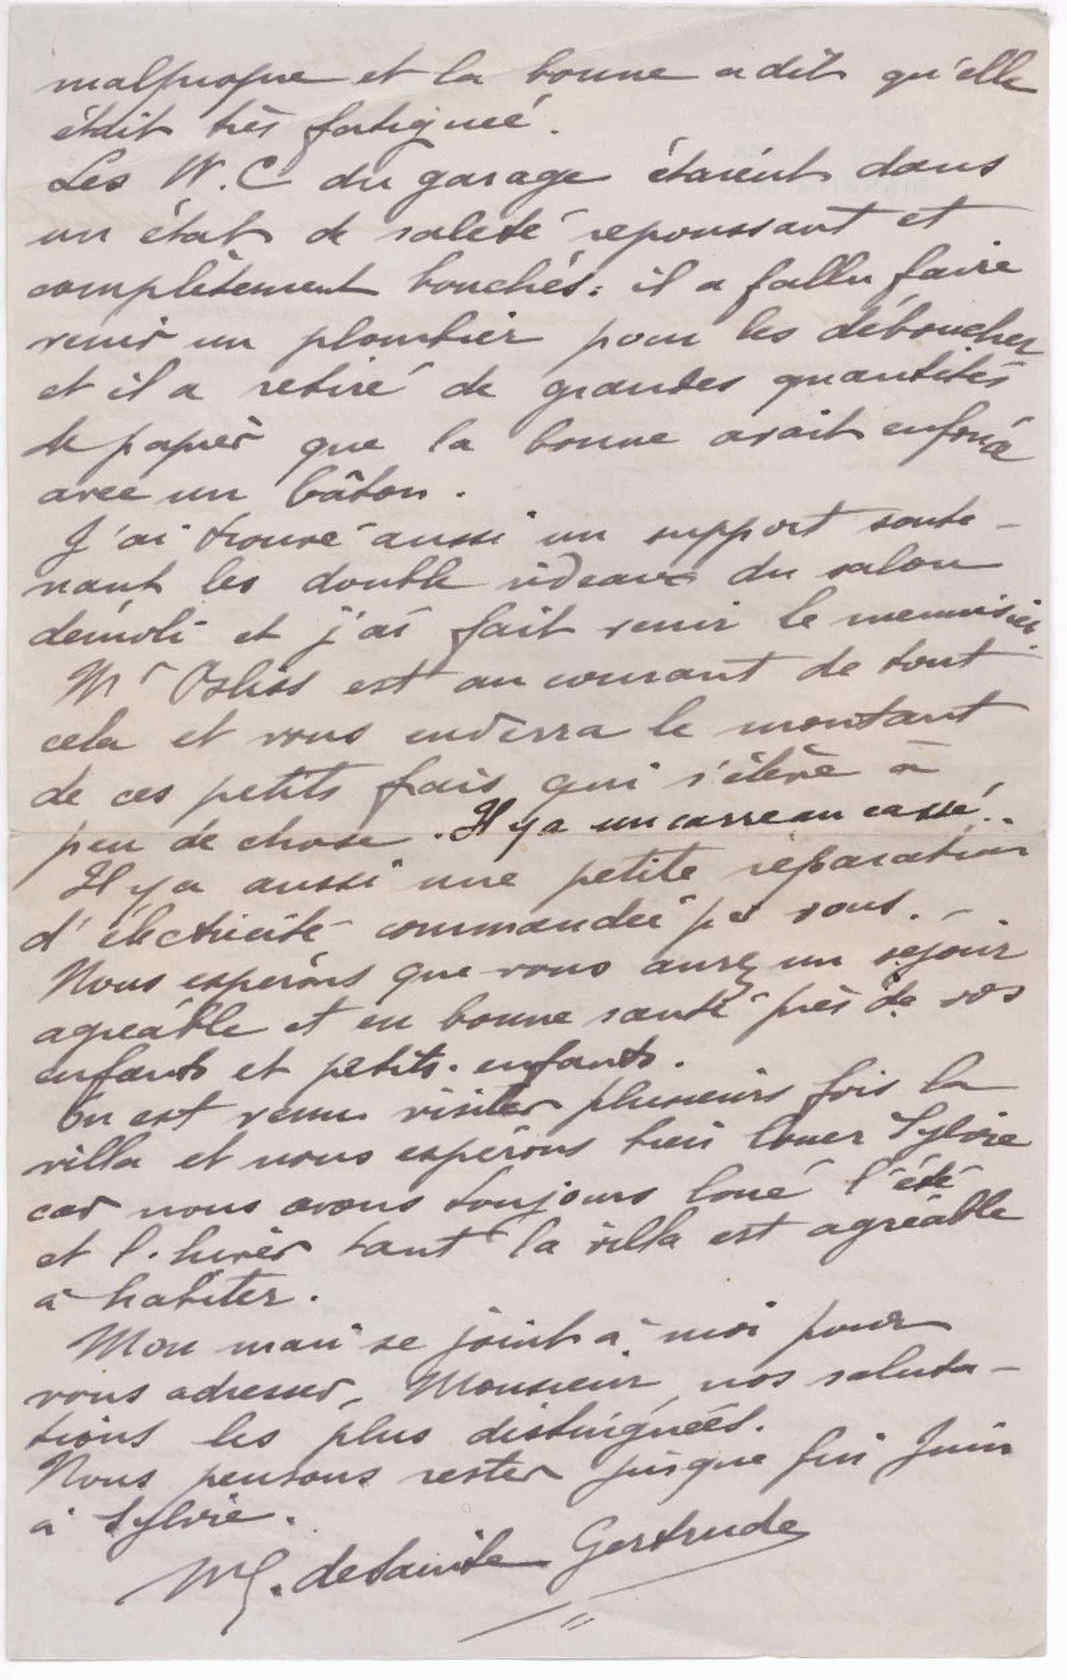 malpropre et la bonne a dit qu'elle
était très fatiguée.
Les W.C du garage étaient dans
un état de saleté repoussant et
complètement bouchés : il a fallu faire
venir un plombier pour les déboucher
et il a retiré de grandes quantités
de papier que la bonne avait enfoncé
avec un bâton.
J'ai trouvé aussi un support soute-
nant les double rideaux du salon
démoli et j'ai fait venir le menuisier.
Mr est au courant de tout
cela et vous enverra le montant
de ces petits frais qui s'élève à
peu de chose. Il y a un carreau cassé.
Il y a aussi une petite réparation
d'électricité commandée par vous. -
Nous espérons que vous aurez un séjour
agréable et en bonne santé près de vos
enfants et petits-enfants.
On est venu visiter plusieurs fois la
villa et nous espérons bien louer Sylvie
car nous avons toujours loué l'été
et l'hiver tant la villa est agréable
à habiter.
Mon mari se joint à moi pour
vous adresser, Monsieur, nos saluta-
tions les plus distinguées.
Nous pensons rester jusque fin Juin
à Sylvie.
de Sainte Gertrude